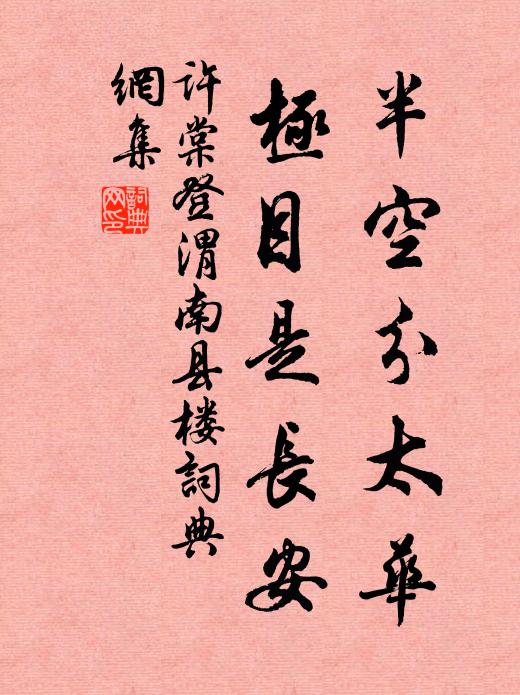 半空分太華
極目是長安
許棠登渭南县楼詞典
網集
詞典网印